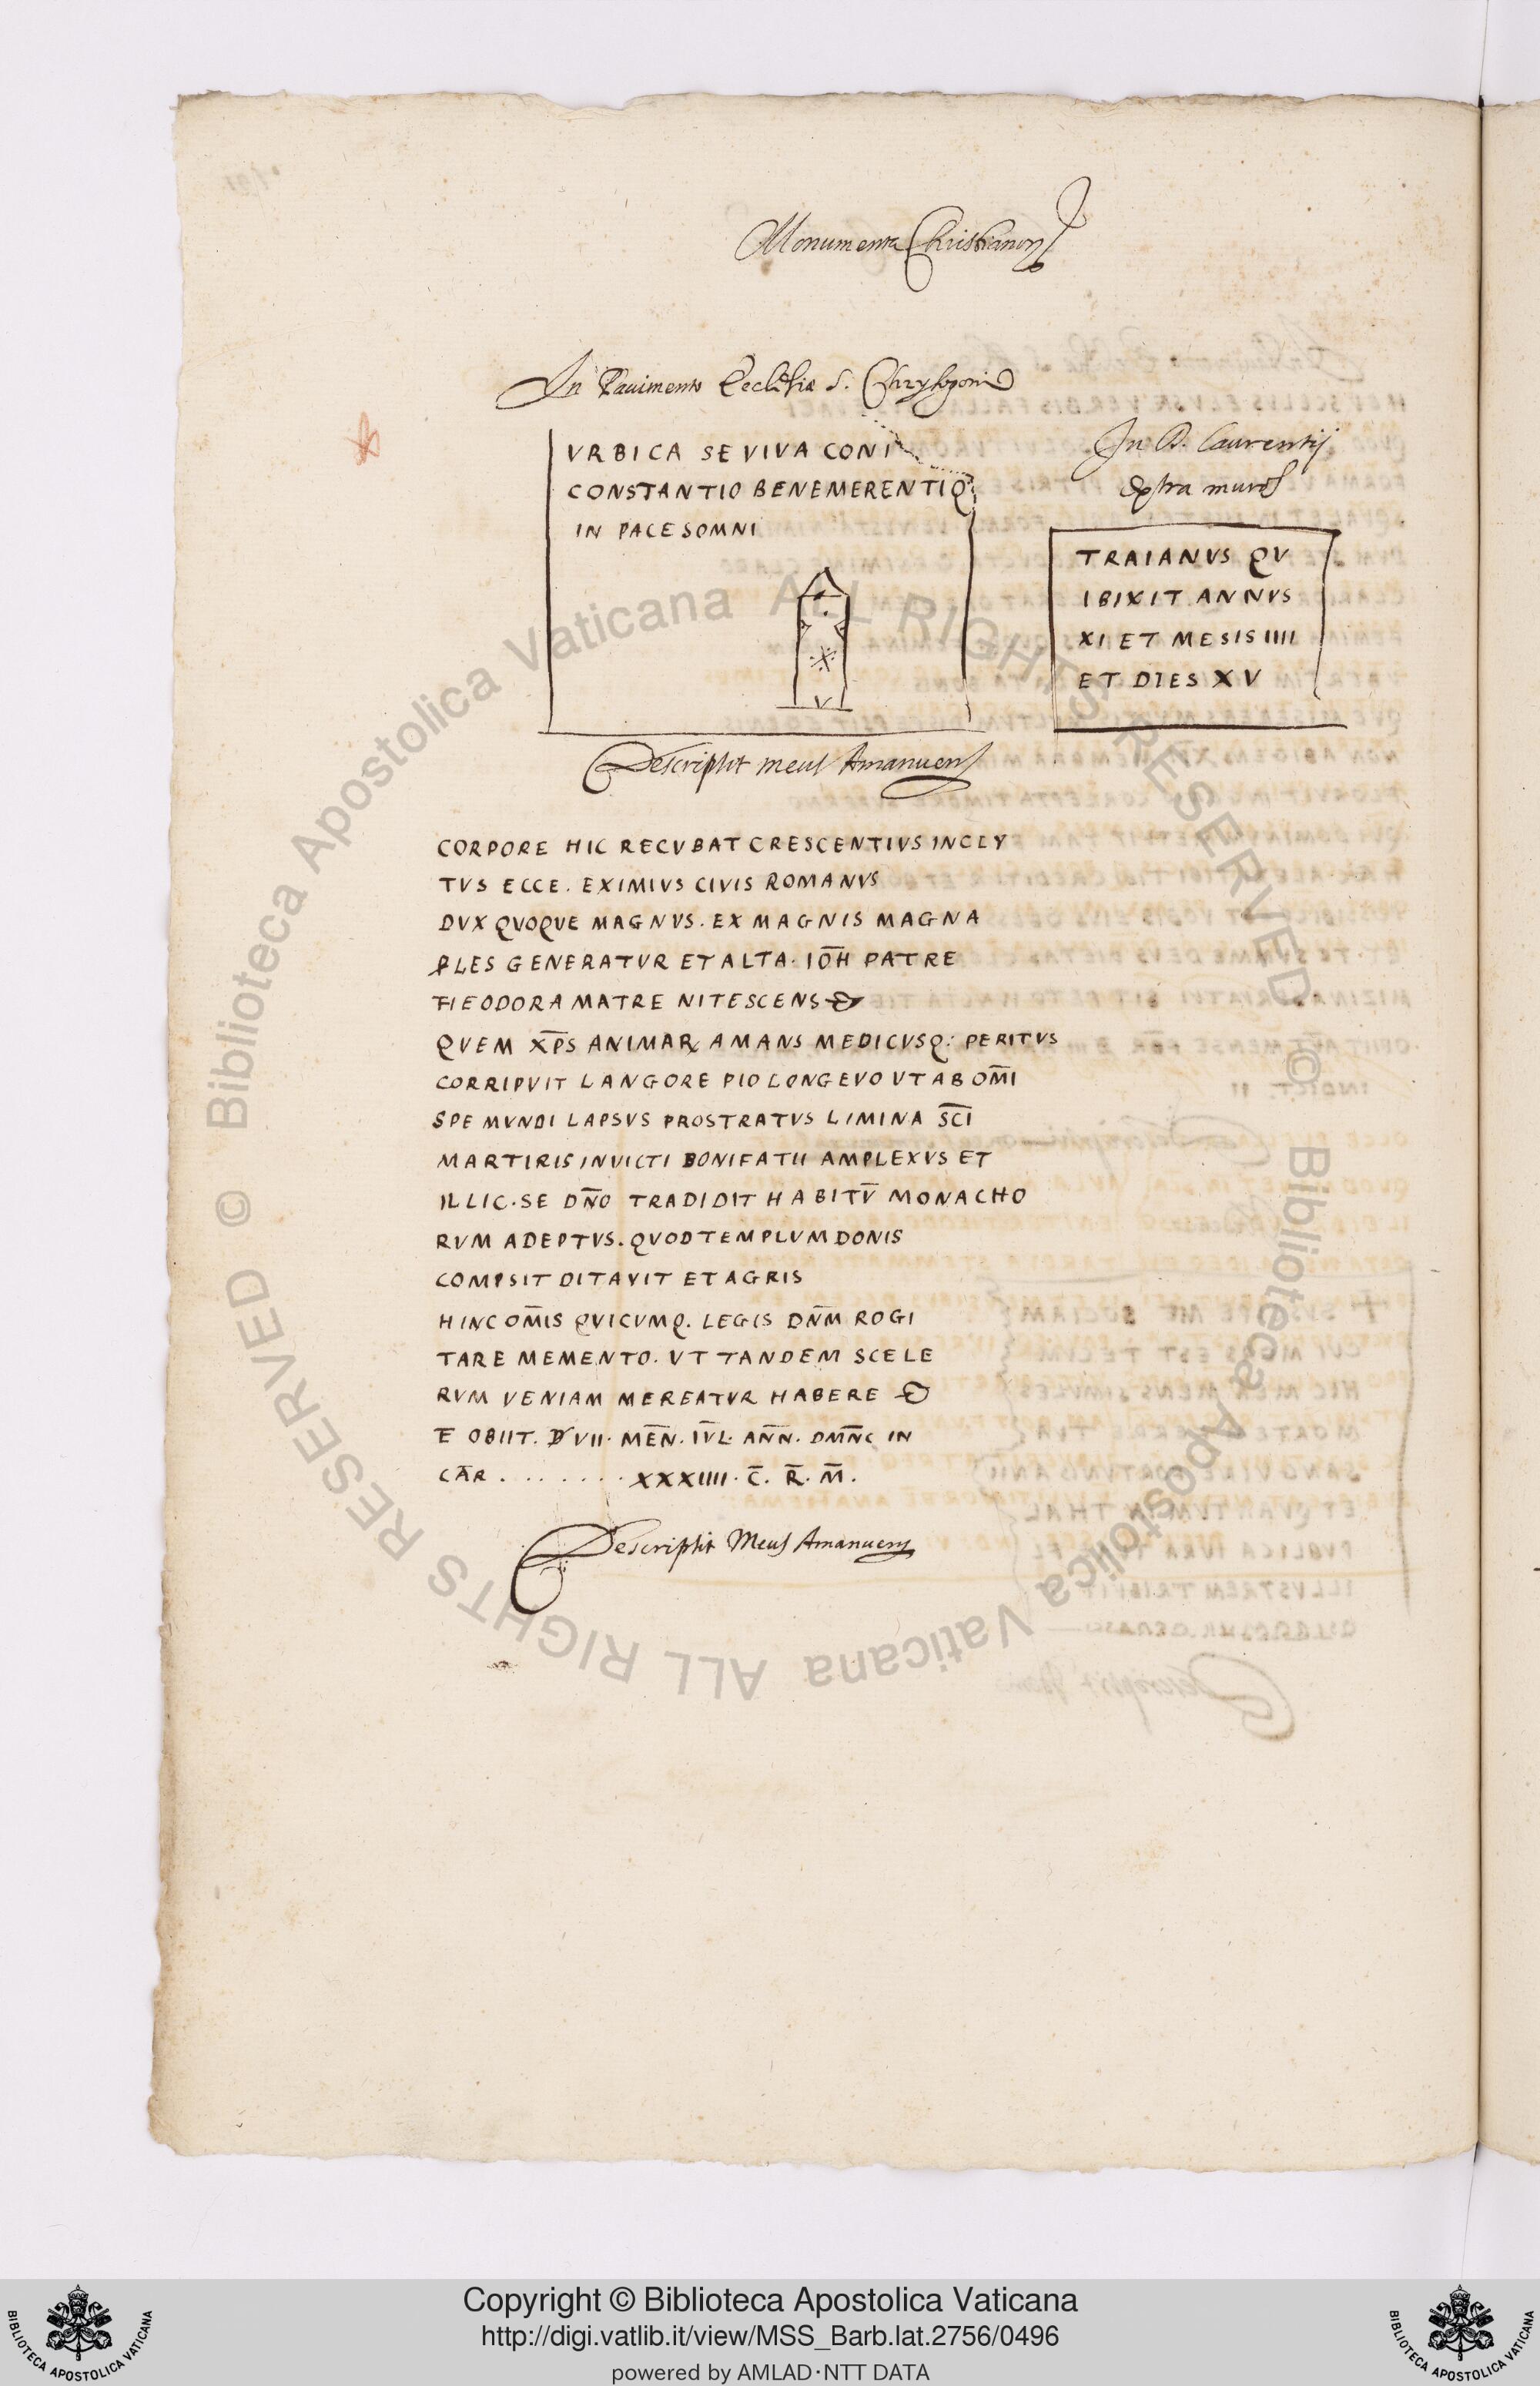 Monumenta Christianoꝝ
In Pauimento Ecclesiæ S. Chrysogoni
VRBICA SE VIVA CONI
CONSTANTIO BENEMERENTI Q
IN PACE SOMNI
In D. Laurentij
extra muros
TRAIANVS QV
IBIXIT ANNVS
XI ET MESIS IIII
ET DIES XV
Descripsit meus Amanuens
CORPORE HIC RECVBAT CRESCENTIVS INCLY
TVS ECCE. EXIMIVS CIVIS ROMANVS
DVX QVOQVE MAGNVS. EX MAGNIS MAGNA
PLES GENERATVR ET ALTA. IOH̅ PATRE
THEODORA MATRE NITESCENS
QVEM XP̅S ANIMAꝜ AMANS MEDICVSQ: PERITVS
CORRIPVIT LANGORE PIO LONGEVO VT AB OM̅I
SPE MVNDI LAPSVS PROSTRATVS LIMINA SC̅I
MARTIRIS INVICTI BONIFATII AMPLEXVS ET
ILLIC. SE DN̅O TRADIDIT HABITV̅ MONACHO
RVM ADEPTVS. QVOD TEMPLVM DONIS
COMPSIT DITAVIT ET AGRIS
HINC OM̅IS QVICVMQ. LEGIS DN̅M ROGI
TARE MEMENTO. VT TANDEM SCELE
RVM VENIAM MEREATVR HABERE
E OBIIT. D VII. MEN̅. IVL̅. ANN̅. DMN̅C IN
CAR̅ . . . . . . . XXXIIII. C̅. R̅. M̅.
Descripsit Meus Amanuens
© Biblioteca Apostolica Vaticana ALL RIGHTS RESERVED
© Biblioteca Apostolica Vaticana ALL RIGHTS RESERVED
BIBLIOTECA APOSTOLICA VATICANA
Copyright © Biblioteca Apostolica Vaticana
http://digi.vatlib.it/view/MSS_Barb.lat.2756/0496
powered by AMLAD·NTT DATA
BIBLIOTECA APOSTOLICA VATICANA